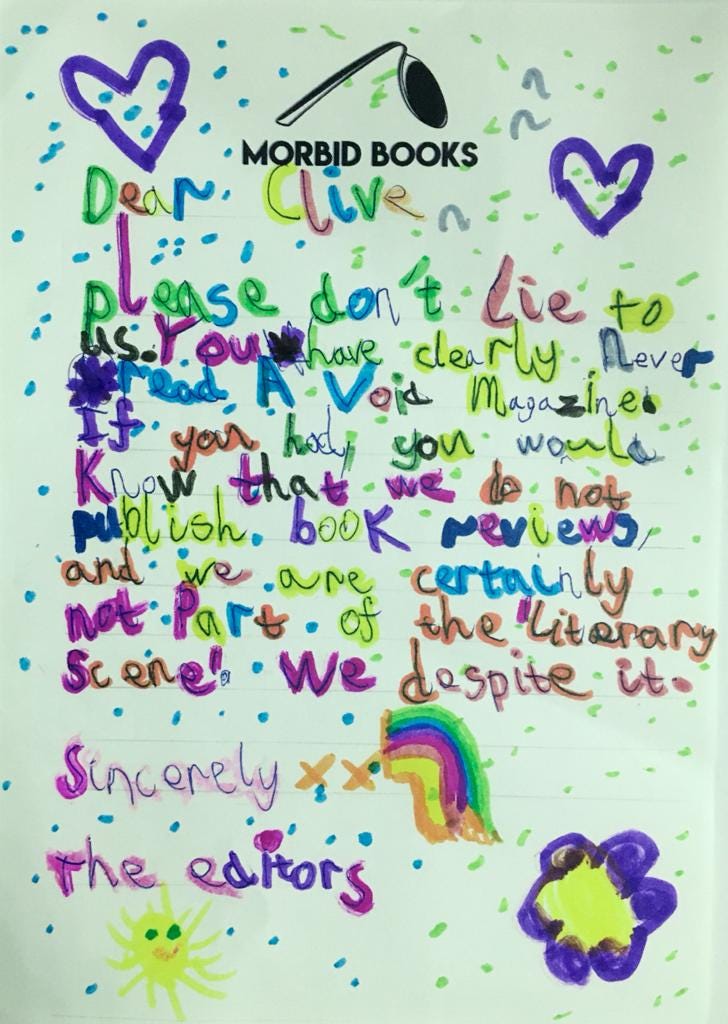 MORBID BOOKS
Dear Clive
please don't Lie to
us. You have clearly Never
read A Void Magazine.
If you had, you would
Know that we do not
publish book reviews,
and we are certainly
not Part of the "Literary
Scene". We despite it.
Sincerely xx
The editors